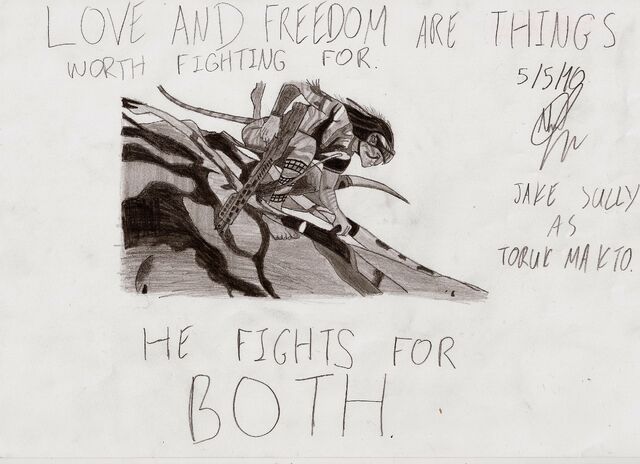 LOVE AND FREEDOM ARE THINGS
WORTH FIGHTING FOR.
5/5/10
JAKE SULLY
AS
TORUK MAKTO.
HE FIGHTS FOR
BOTH.